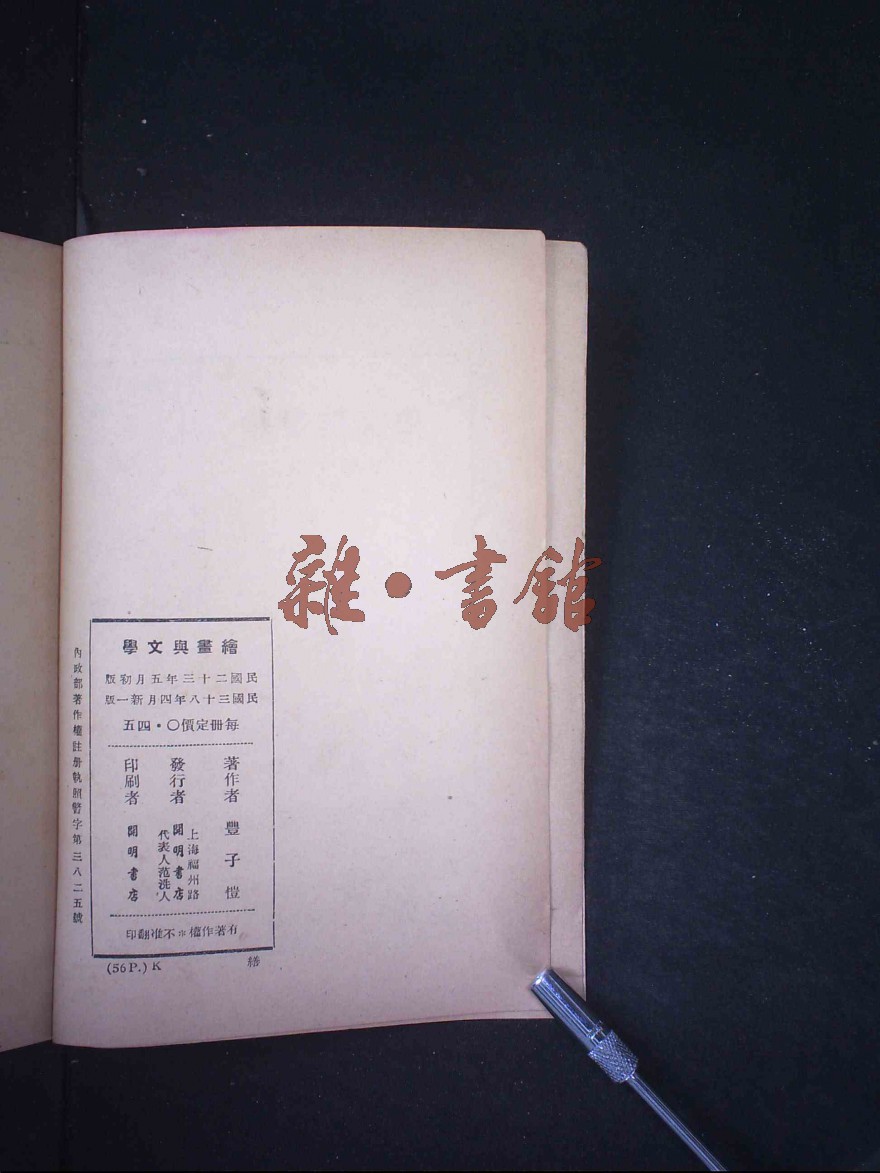 雜・書舘
繪畫與文學
民國二十三年五月初版
民國三十八年四月新一版
每冊定價〇・四五
著作者 豐子愷
發行者
上海福州路
開明書店
代表人范洗人
印刷者 開明書店
有著作權不准翻印
內政部著作權註册執照警字第三八二五號
(56P.) K
繕